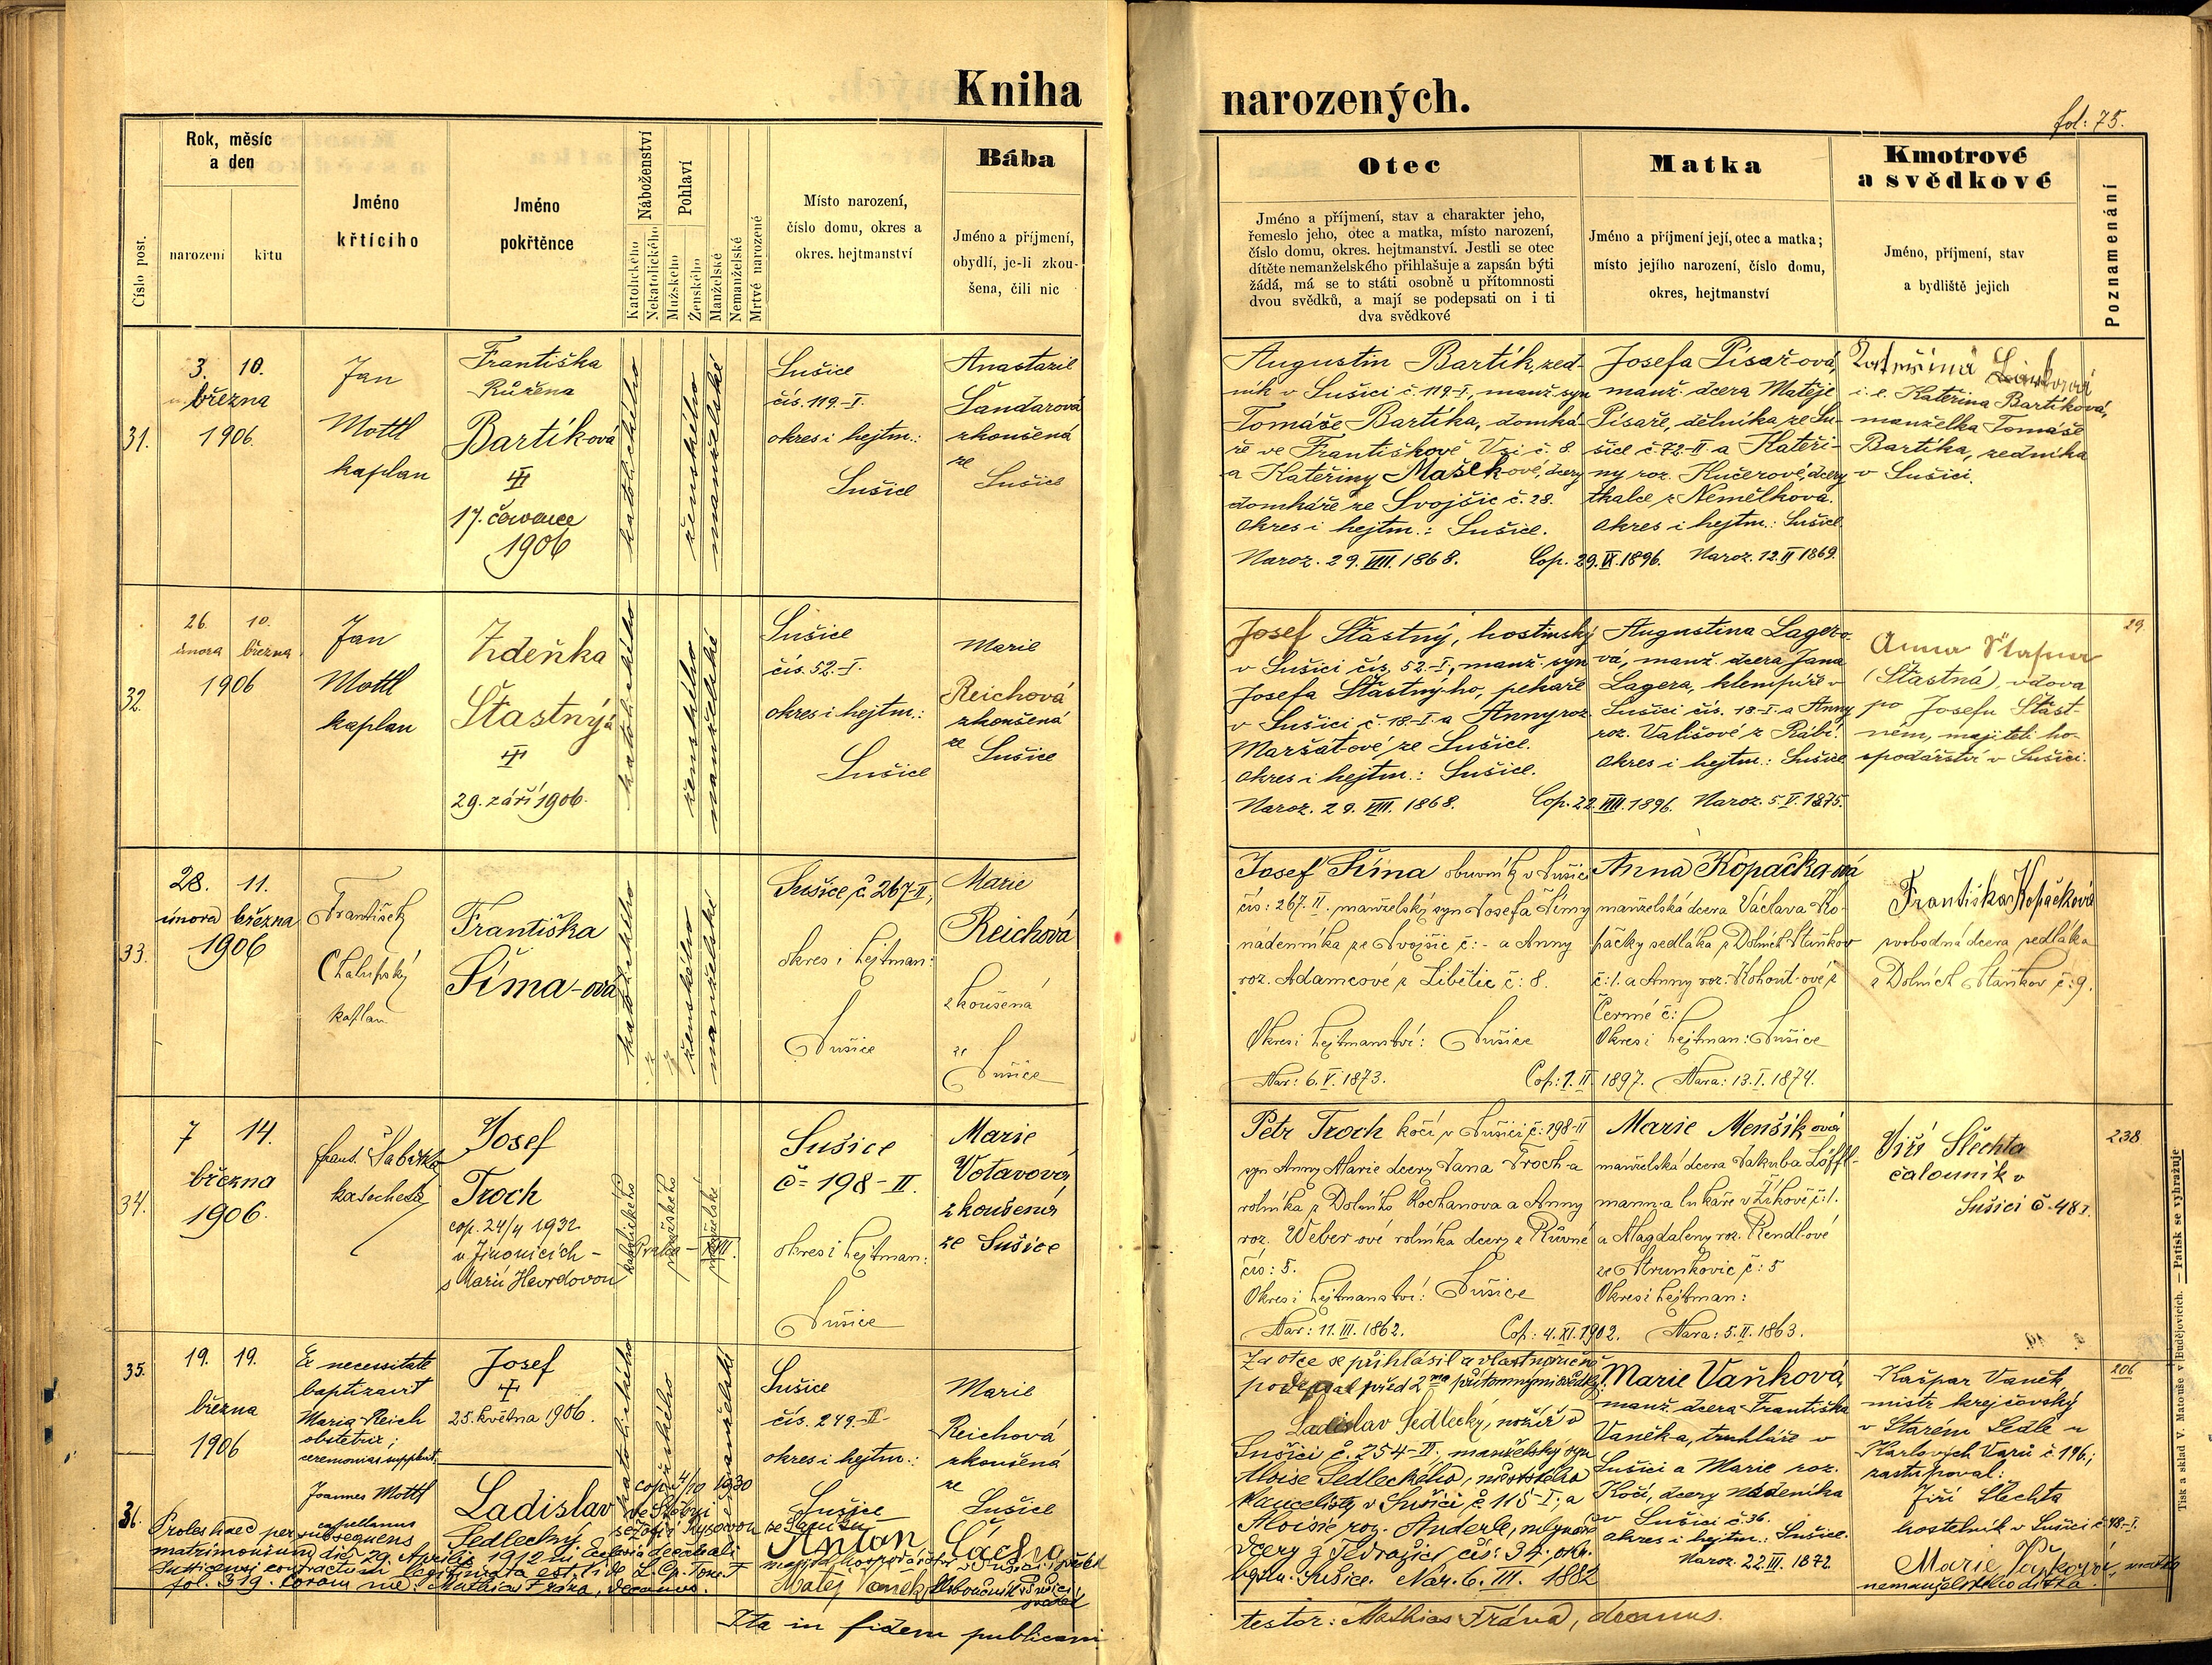 Kniha narozených.
fol: 75.
Číslo post.
Rok, měsíc
a den
narození
křtu
Jméno
křtícího
Jméno
pokřtěnce
Náboženství
Katolického
Nekatolického
Pohlaví
Mužského
Ženského
Manželské
Nemanželské
Mrtvé narozené
Místo narození,
číslo domu, okres a
okres. hejtmanství
Bába
Jméno a příjmení,
obydlí, je-li zkou-
šena, čili nic
Otec
Jméno a příjmení, stav a charakter jeho,
řemeslo jeho, otec a matka, místo narození,
číslo domu, okres. hejtmanství. Jestli se otec
dítěte nemanželského přihlašuje a zapsán býti
žádá, má se to státi osobně u přítomnosti
dvou svědků, a mají se podepsati on i ti
dva svědkové
Matka
Jméno a příjmení její, otec a matka;
místo jejího narození, číslo domu,
okres, hejtmanství
Kmotrové
a svědkové
Jméno, příjmení, stav
a bydliště jejich
Poznamenání
31.
3. 10.
března
1906.
Jan
Mottl
kaplan
Františka
Růžena
Bartíková
17. července
1906
katolického
ženského
manželské
Sušice
čís. 119.-I.
okres i hejtm.:
Sušice
Anastazie
Šandarová
zkoušená
ze
Sušice
Augustin Bartík, zed-
ník v Sušici č. 119-I, manž. syn
Tomáše Bartíka, domká-
ře ve Františkově Vsi č. 8
a Kateřiny Mašek-ové, dcery
domkáře ze Svojšic č. 28.
Okres i hejtm.: Sušice.
Naroz. 29. VIII. 1868. Cop. 29. IX. 1896.
Josefa Písař-ová,
manž. dcera Matěje
Písaře, dělníka ze Su-
šice č. 72-II a Kateři-
ny roz. Kučerové, dcery
tkalce z Nemělkova.
Okres i hejtm.: Sušice
Naroz. 12. II 1869.
i. e. Kateřina Bartíková,
manželka Tomáše
Bartíka, zedníka
v Sušici.
32.
26. 10.
února března
1906
Jan
Mottl
kaplan
Zdeňka
Šťastný-á
29. září 1906.
katolického
ženského
manželské
Sušice
čís. 52.-I.
okres i hejtm.:
Sušice
Marie
Reichová
zkoušená
ze
Sušice
Josef Šťastný, hostinský
v Sušici čís. 52-I, manž. syn
Josefa Šťastný-ho, pekaře
v Sušici č. 18-I. a Anny roz.
Maršát-ové ze Sušice.
Okres i hejtm.: Sušice.
Naroz. 29. VIII. 1868. Cop. 22. VIII. 1896.
Augustina Lagero-
vá, manž. dcera Jana
Lagera, klempíře v
Sušici čís. 18-I. a Anny
roz. Vališové z Rábí.
Okres i hejtm.: Sušice
Naroz. 5. V. 1875.
Anna
(Šťastná), vdova
po Josefu Šťast-
ném, majiteli ho-
spodářství v Sušici.
29.
33.
28. 11.
února března
1906
František
Chalupský
kaplan
Františka
Šíma-ová
katolického
ženského
manželské
Sušice č. 267-II,
okres i hejtman:
Sušice
Marie
Reichová
zkoušená
ze
Sušice
Josef Šíma obuvník v Sušici
čís: 267. II. manželský syn Josefa Šímy
nádenníka ze Svojšic č: - a Anny
roz. Adamcové z Libětic č: 8.
Okres i hejtmanství: Sušice
Nar: 6. V. 1873. Cop: 1. II. 1897.
Anna Kopačka-ová
manželská dcera Václava Ko-
páčky sedláka z Dolních Staňkov
č: 1. a Anny roz. Kohout-ové z
Černé č:
Okres i hejtman: Sušice
Nara: 13. I. 1874.
Františka Kopačková
svobodná dcera sedláka
z Dolních Staňkov č: 9.
34.
7 14.
března
1906.
Frant. Sabitka
katecheta
Josef
Troch
cop. 24/4 1932
v Jinonicích -
Praha - XVII.
s Marií Havrdovou
katolického
manželské
Sušice
č= 198 - II.
okres i hejtman:
Sušice
Marie
Votavová
zkoušená
ze Sušice
Petr Troch kočí v Sušici č: 198-II
syn Anny Marie dcery Jana Troch-a
rolníka z Dolního Kochanova a Anny
roz. Weber-ové rolníka dcery z Růvné
čís: 5.
Okres i hejtmanství: Sušice
Nar: 11. III. 1862. Cop: 4. XI. 1902.
Marie Menšík-ová
manželská dcera Jakuba Löffl-
mann-a lukaře v Žikově č: 1.
a Magdaleny roz. Rendl-ové
ze Strunkovic č: 5
Okres i hejtman:
Nara: 5. II. 1863.
Jiří Šlechta
čalouník v
Sušici č. 48 I.
238
35.
19. 19.
března
1906
Ex necessitate
baptizavit
Maria Reich
obstetrix;
ceremonias supplevit
Joannes Mottl
capellanus
Josef
25. května 1906.
katolického
Sušice
čís. 249.-II-
okres i hejtm.:
Sušice
Marie
Reichová
zkoušená
ze
Sušice
36.
Ladislav
Sedlecký
cop. 4/10 1930
Proles haec per subsequens
matrimonium die 29. Aprilis 1912 in Ecclesia decanali
Sušicensi contractum legitimata est, vide L. Cop. Tom.
fol. 319. Coram me: Mathias Frána, decanus.
Antoň Cácha
majitel hospodářství v Sušici svědek
Matěj Vaněk, v Sušici
svědek
Ita in fidem publicam
Za otce se přihlásil a vlastnoručně
podepsal před 2ma přítomnými svědky:
Ladislav Sedlecký, nožíř v
Sušici č. 254-II, manželský syn
Aloise Sedleckého, městského
kancelisty v Sušici č 115-I, a
Aloisie roz. Anderle, mlynáře
dcery z Jedražic čís: 34. okr.
hejtm. Sušice. Nar. 6. III. 1882
Marie Vaňková
manž. dcera Františka
Vaněka, truhláře v
Sušici a Marie roz.
Kočí, dcery nádeníka
v Sušici č. 36.
Okres i hejtm.: Sušice.
Naroz. 22. III. 1872.
Kašpar Vaněk,
mistr krejčovský
v Starém Sedle u
Karlových Varů č 196.;
zastupoval:
Jiří Šlechta
kostelník v Sušici č 48-I.
Marie Vaňková, matka
nemanželského dítka.
206
testor: Mathias Frána, decanus.
Tisk a sklad V. Matouše v Budějovicích. — Patisk se vyhražuje